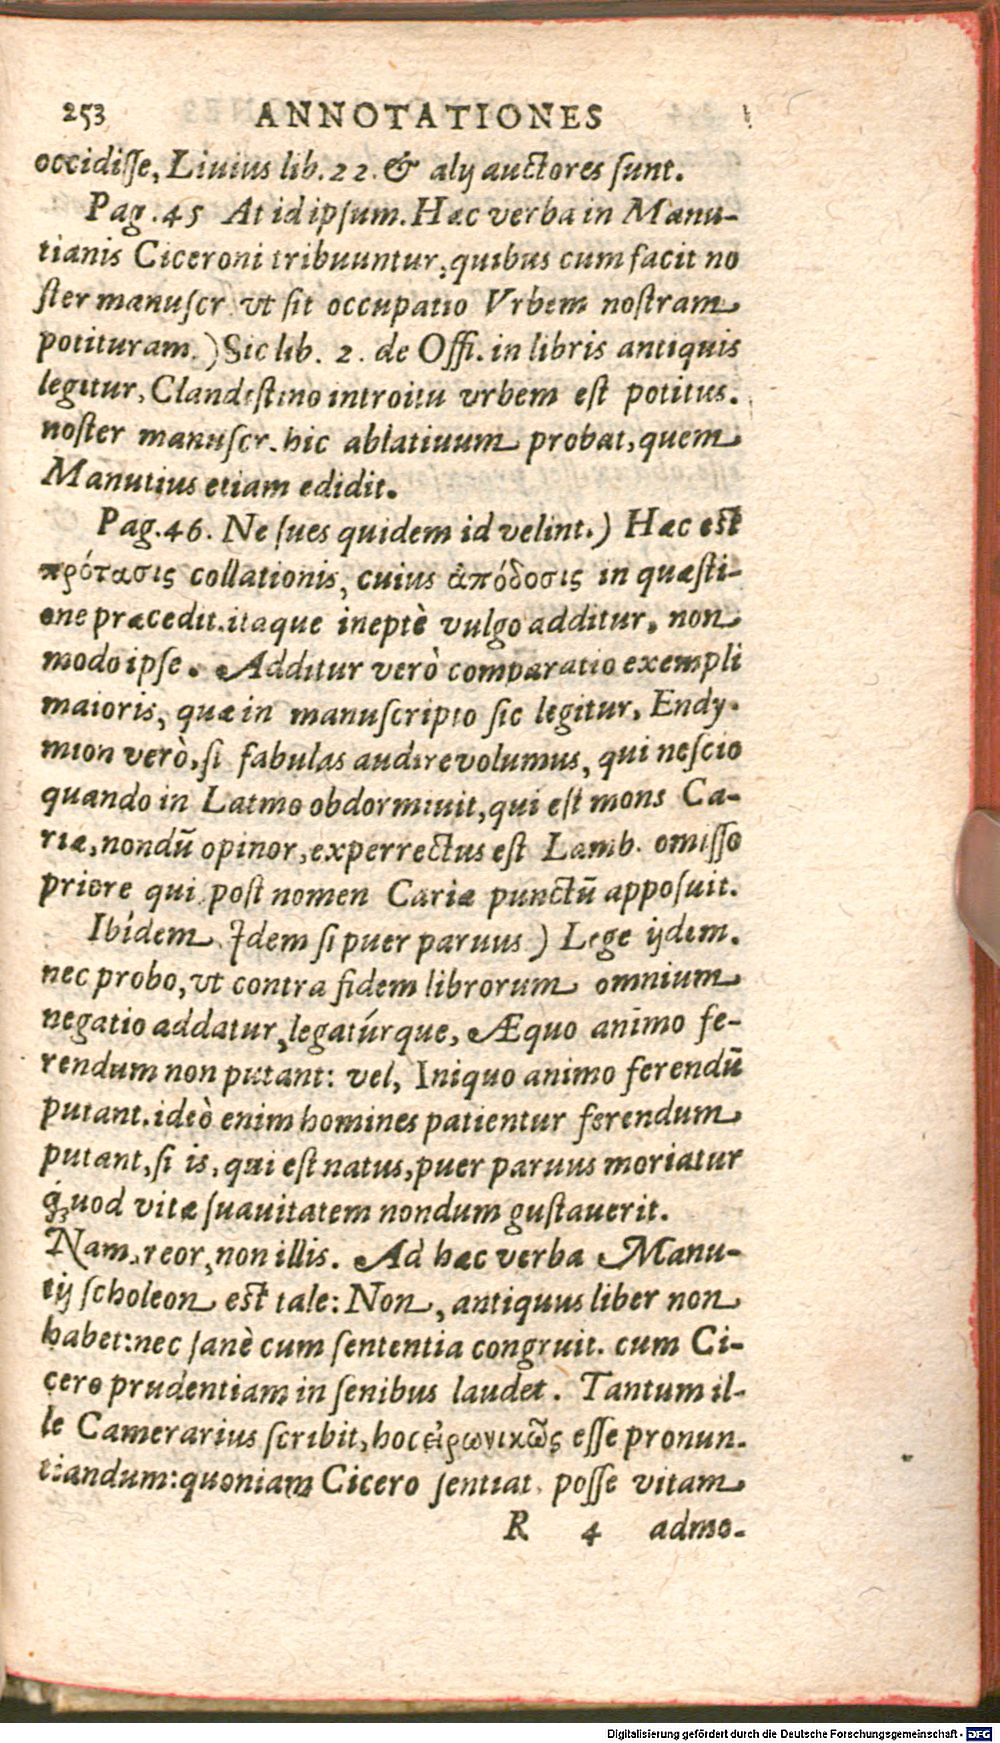 253 ANNOTATIONES
occidisse, Liuius lib. 22. & alij auctores sunt.
Pag. 45 At id ipsum. Hæc verba in Manu-
tianis Ciceroni tribuuntur, quibus cum facit no
ster manuscr vt sit occupatio Vrbem nostram
potituram.) Sic lib. 2. de Offi. in libris antiquis
legitur, Clandestino introitu vrbem est potitus.
noster manuscr. hic ablatiuum probat, quem
Manutius etiam edidit.
Pag. 46. Ne sues quidem id velint.) Hæc est
πρότασις collationis, cuius ἀπόδοσις in quæsti-
one præcedit. itaque ineptè vulgo additur, non
modo ipse. Additur verò comparatio exempli
maioris, quæ in manuscripto sic legitur, Endy-
mion verò, si fabulas audire volumus, qui nescio
quando in Latmo obdormiuit, qui est mons Ca-
riæ, nondū opinor, experrectus est Lamb. omisso
priore qui post nomen Cariæ punctū apposuit.
Ibídem. Idem si puer paruus ) Lege ijdem.
nec probo, vt contra fidem librorum omnium
negatio addatur, legatúrque, Æquo animo fe-
rendum non putant: vel, Iniquo animo ferendū
putant. ideò enim homines patientur ferendum
putant, si is, qui est natus, puer paruus moriatur
quod vitæ suauitatem nondum gustauerit.
Nam, reor, non illis. Ad hæc verba Manu-
tij scholeon est tale: Non, antiquus liber non
habet: nec sanè cum sententia congruit. cum Ci-
cero prudentiam in senibus laudet. Tantum il-
le Camerarius scribit, hoc εἰρωνικῶς esse pronun-
tiandum: quoniam Cicero sentiat, posse vitam
R 4 admo-
Digitalisierung gefördert durch die Deutsche Forschungsgemeinschaft - DFG